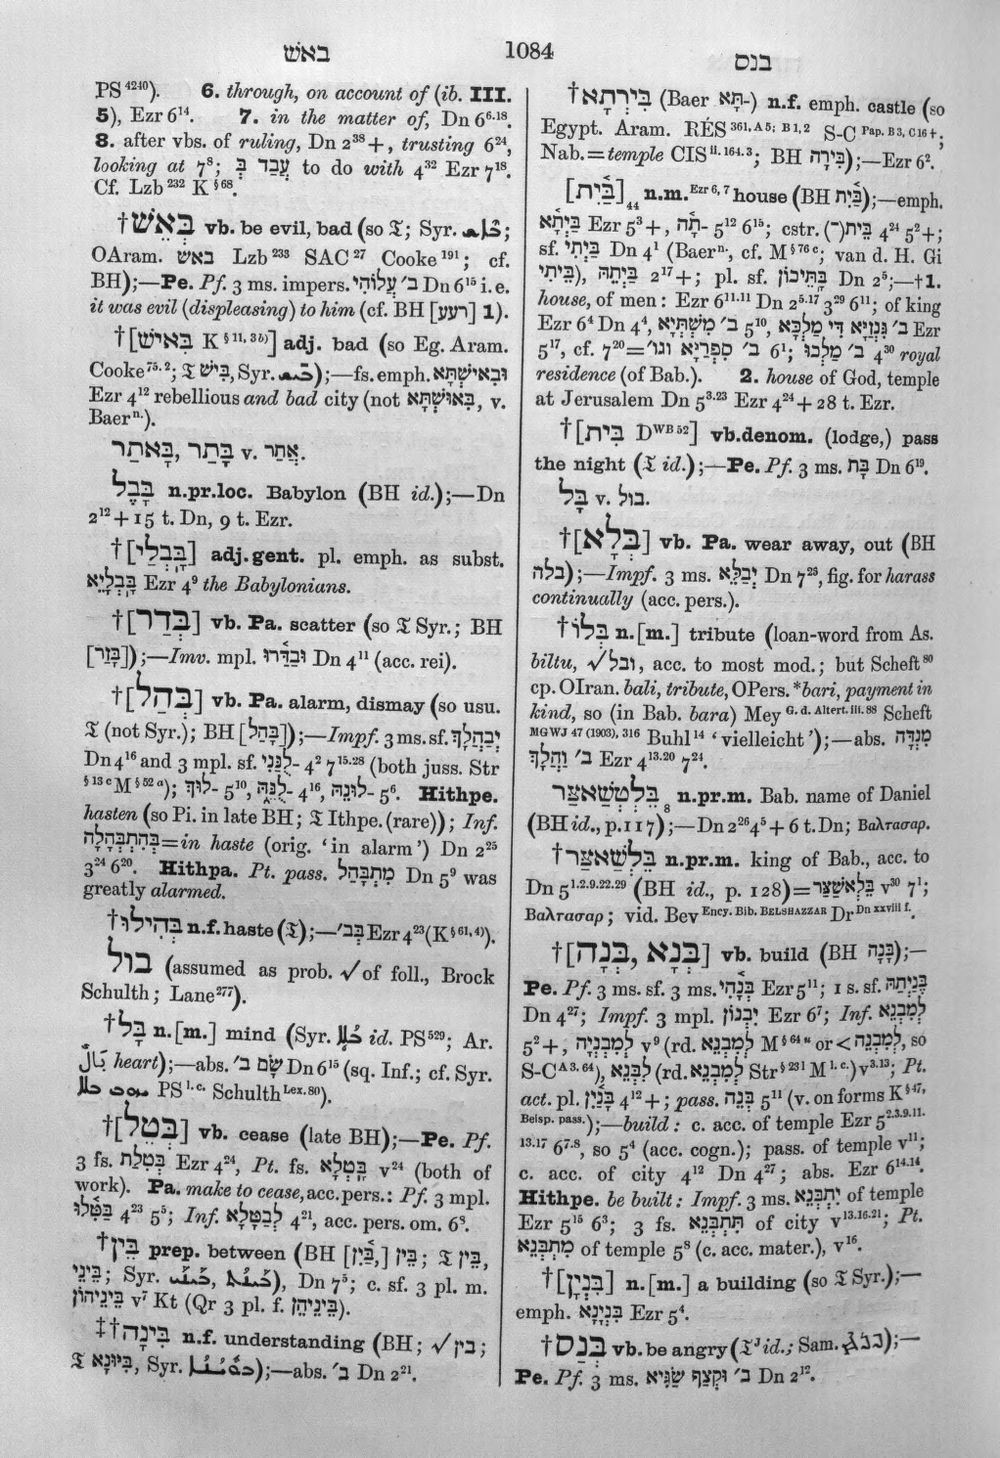 באש
1084
בנס
PS 4240). 6. through, on account of (ib. III.
5), Ezr 6 14. 7. in the matter of, Dn 6 6.18.
8. after vbs. of ruling, Dn 2 38 +, trusting 6 24,
looking at 7 8; עֲבַד בְּ to do with 4 32 Ezr 7 18.
Cf. Lzb 232 K § 68.
†בְּאֵשׁ vb. be evil, bad (so 𝔗; Syr.
OAram. באש Lzb 233 SAC 27 Cooke 191; cf.
BH);—Pe. Pf. 3 ms. impers. ב׳ עֲלוֹהִי Dn 6 15 i.e.
it was evil (displeasing) to him (cf. BH [רעע] 1).
†[בְּאִישׁ K § 11, 3 b)] adj. bad (so Eg. Aram.
Cooke 75. 2; 𝔗 בִּישׁ, Syr. );—fs. emph. וּבְאִישְׁתָּא
Ezr 4 12 rebellious and bad city (not בְּאוּשְׁתָּא, v.
Baer n.).
בָּאתַר, בָּתַר v. אֲתַר.
בָּבֶל n.pr.loc. Babylon (BH id.);—Dn
2 12 + 15 t. Dn, 9 t. Ezr.
†[בָּבְלַי] adj.gent. pl. emph. as subst.
בָּבְלָיֵא Ezr 4 9 the Babylonians.
†[בְּדַר] vb. Pa. scatter (so 𝔗 Syr.; BH
[בָּזַר]);—Imv. mpl. וּבַדַּרוּ Dn 4 11 (acc. rei).
†[בְּהַל] vb. Pa. alarm, dismay (so usu.
𝔗 (not Syr.); BH [בָּהַל]);—Impf. 3 ms. sf. יְבַהֲלָךְ
Dn 4 16 and 3 mpl. sf. ־לֻנַּנִי 4 2 7 15.28 (both juss. Str
§ 13 c M § 52 a); ־לוּךְ 5 10, ־לֻנֵּהּ 4 16, ־לוּנֵּהּ 5 6. Hithpe.
hasten (so Pi. in late BH; 𝔗 Ithpe. (rare)); Inf.
בְּהִתְבְּהָלָה = in haste (orig. ‘in alarm’) Dn 2 25
3 24 6 20. Hithpa. Pt. pass. מִתְבָּהַל Dn 5 9 was
greatly alarmed.
†בְּהִילוּ n.f. haste (𝔗);—בִּב׳ Ezr 4 23 (K § 61, 4)).
בול (assumed as prob. √ of foll., Brock
Schulth; Lane 277).
†בָּל n.[m.] mind (Syr. id. PS 529; Ar.
بَالٌ heart);—abs. שָׂם ב׳ Dn 6 15 (sq. Inf.; cf. Syr.
PS l. c. Schulth Lex. 80).
†[בְּטֵל] vb. cease (late BH);—Pe. Pf.
3 fs. בְּטֵלַת Ezr 4 24, Pt. fs. בָּטְלָא v 24 (both of
work). Pa. make to cease, acc. pers.: Pf. 3 mpl.
בַּטִּלוּ 4 23 5 5; Inf. לְבַטָּלָא 4 21, acc. pers. om. 6 8.
†בֵּין prep. between (BH [בַּיִן,] בֵּין; 𝔗 בֵּין,
בֵּינֵי; Syr. ), Dn 7 5; c. sf. 3 pl. m.
בֵּינֵיהוֹן v 7 Kt (Qr 3 pl. f. בֵּינֵיהֵן).
‡†בִּינָה n.f. understanding (BH; √בין;
𝔗 בִּיּוּנָא, Syr. );—abs. ב׳ Dn 2 21.
†בִּירְתָא (Baer ־תָּא) n.f. emph. castle (so
Egypt. Aram. RÉS 361, A 5; B 1, 2 S-C Pap. B 3, C 16 +;
Nab. = temple CIS ii. 164. 3; BH בִּירָה);—Ezr 6 2.
[בַּיִת] 44 n.m. Ezr 6, 7 house (BH בַּיִת);—emph.
בַּיְתָא Ezr 5 3 +, ־תָה 5 12 6 15; cstr. בֵּית(־) 4 24 5 2 +;
sf. בַּיְתִי Dn 4 1 (Baer n., cf. M § 76 c; van d. H. Gi
בֵּיתִי), בַּיְתֵהּ 2 17 +; pl. sf. בָּתֵּיכוֹן Dn 2 5;—†1.
house, of men: Ezr 6 11.11 Dn 2 5.17 3 29 6 11; of king
Ezr 6 4 Dn 4 4, ב׳ מִשְׁתְּיָא 5 10, ב׳ גִּנְזַיָּא דִּי מַלְכָּא Ezr
5 17, cf. 7 20 = ב׳ סִפְרַיָּא וגו׳ 6 1; ב׳ מַלְכוּ 4 30 royal
residence (of Bab.). 2. house of God, temple
at Jerusalem Dn 5 3.23 Ezr 4 24 + 28 t. Ezr.
†[בִּית D WB 52] vb.denom. (lodge,) pass
the night (𝔗 id.);—Pe. Pf. 3 ms. בָּת Dn 6 19.
בָּל v. בול.
†[בְּלָא] vb. Pa. wear away, out (BH
בלה);—Impf. 3 ms. יְבַלֵּא Dn 7 25, fig. for harass
continually (acc. pers.).
†בְּלוֹ n.[m.] tribute (loan-word from As.
biltu, √ובל, acc. to most mod.; but Scheft 80
cp. OIran. bali, tribute, OPers. *bari, payment in
kind, so (in Bab. bara) Mey G. d. Altert. iii. 88 Scheft
MGWJ 47 (1903), 316 Buhl 14 ‘vielleicht’);—abs. מִנְדָּה
ב׳ וַהֲלָךְ Ezr 4 13.20 7 24.
בֵּלְטְשַׁאצַּר 8 n.pr.m. Bab. name of Daniel
(BH id., p. 117);—Dn 2 26 4 5 + 6 t. Dn; Βαλτασαρ.
†בֵּלְשַׁאצַּר n.pr.m. king of Bab., acc. to
Dn 5 1.2.9.22.29 (BH id., p. 128) = בֵּלְאשַׁצַּר v 30 7 1;
Βαλτασαρ; vid. Bev Ency. Bib. BELSHAZZAR Dr Dn xxviii f.
†[בְּנָא, בְּנָה] vb. build (BH בָּנָה);—
Pe. Pf. 3 ms. sf. 3 ms. בְּנָהִי Ezr 5 11; 1 s. sf. בֱּנַיְתַהּ
Dn 4 27; Impf. 3 mpl. יִבְנוֹן Ezr 6 7; Inf. לְמִבְנֵא
5 2 +, לְמִבְנְיָה v 9 (rd. לְמִבְנֵא M § 64 n or < לְמִבְנֵה, so
S-C A 3. 64), לִבְּנֵא (rd. לְמִבְנֵא Str § 231 M l. c.) v 3.13; Pt.
act. pl. בָּנַיִן 4 12 +; pass. בְּנֵה 5 11 (v. on forms K § 47,
Beisp. pass.);—build: c. acc. of temple Ezr 5 2.3.9.11.
13.17 6 7.8, so 5 4 (acc. cogn.); pass. of temple v 11;
c. acc. of city 4 12 Dn 4 27; abs. Ezr 6 14.14.
Hithpe. be built: Impf. 3 ms. יִתְבְּנֵא of temple
Ezr 5 15 6 3; 3 fs. תִּתְבְּנֵא of city v 13.16.21; Pt.
מִתְבְּנֵא of temple 5 8 (c. acc. mater.), v 16.
†[בִּנְיָן] n.[m.] a building (so 𝔗 Syr.);—
emph. בִּנְיָנָא Ezr 5 4.
†בְּנַס vb. be angry (𝔗J id.; Sam. );—
Pe. Pf. 3 ms. ב׳ וּקְצַף שַׂגִּיא Dn 2 12.